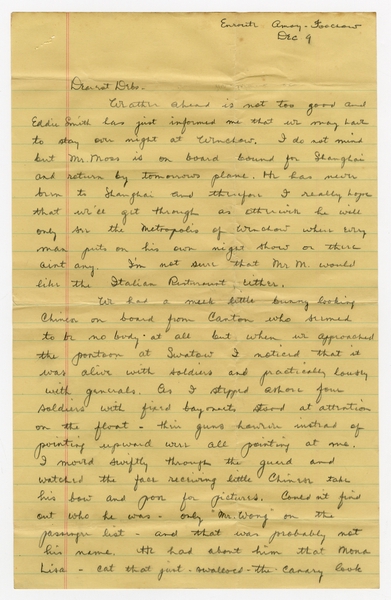 Enroute Amoy - Foochow
Dec 9
Dearest Debs -
Weather ahead is not too good and
Eddie Smith has just informed me that we may have
to stay over night at Wenchow. I do not mind
but Mr. Moss is on board bound for Shanghai
and return by tomorrows plane. He has never
been to Shanghai and therefore I really hope
that we'll get through as otherwise he will
only see the Metropolis of Wenchow where every
man puts on his own night show or there
aint any. I'm not sure that Mr M. would
like the Italian Restaurant either.
We had a meek little bunny looking
Chinese on board from Canton who seemed
to be no body at all but when we approached
the pontoon at Swatow I noticed that it
was alive with soldiers and practically lousy
with generals. As I stepped ashore four
soldiers with fixed bayonets stood at attention
on the float - their guns however instead of
pointing upward were all pointing at me.
I moved swiftly through the guard and
watched the face receiving little Chinese take
his bow and pose for pictures. Could n't find
out who he was - only "Mr. Wong" on the
passenger list - and that was probably not
his name. He had about him that Mona
Lisa - cat that just - swallowed - the canary look